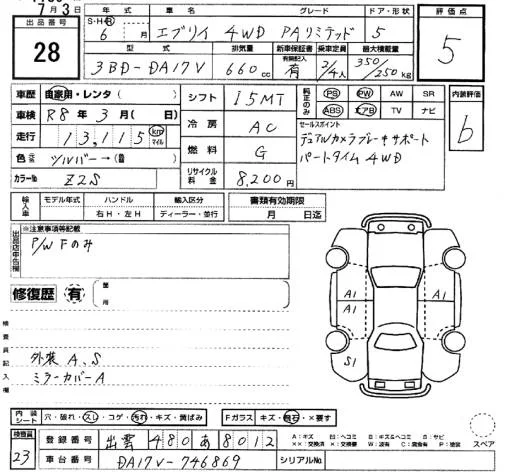 7月3日
出品番号 28
年式 S・H・R 6年 月
車名 エブリイ 4WD
グレード PAリミテッド
ドア・形状 5
評価点 5
型式 3BD-DA17V
排気量 660cc
新車保証書 有無記入 有
乗車定員 2/4人
最大積載量 350/250kg
車歴 自家用・レンタ( )
車検 R8年 3月( 日)
走行 13,115 km マイル
色 元色 シルバー→(色替)
カラーNo Z2S
シフト I5MT
冷房 AC
燃料 G
リサイクル料金 8,200円
純正のみ PS PW AW SR
ABS エアB TV ナビ
セールスポイント
デュアルカメラブレーキサポート
パートタイム4WD
内装評価 b
輸入車 モデル年式 ハンドル 右H・左H 輸入区分 ディーラー・並行
書類有効期限 月 日迄
出品店申告欄 ※注意事項等記載
P/W Fのみ
修復歴 有 箇所
検査員記入欄
外装 A、S
ミラーカバーA
A1 A1 A1
S1
内装シート 穴・破れ・スレ・コゲ・汚れ・キズ・黄ばみ
Fガラス キズ・飛石・×要す
スペア
検査員 23
登録番号 出雲 480 あ 8012
車台番号 DA17V-746869
シリアルNo
A:キズ B:キズ&ヘコミ S:サビ
××:交換済 ×:交換要 W:波有 C:腐食有 P:塗装